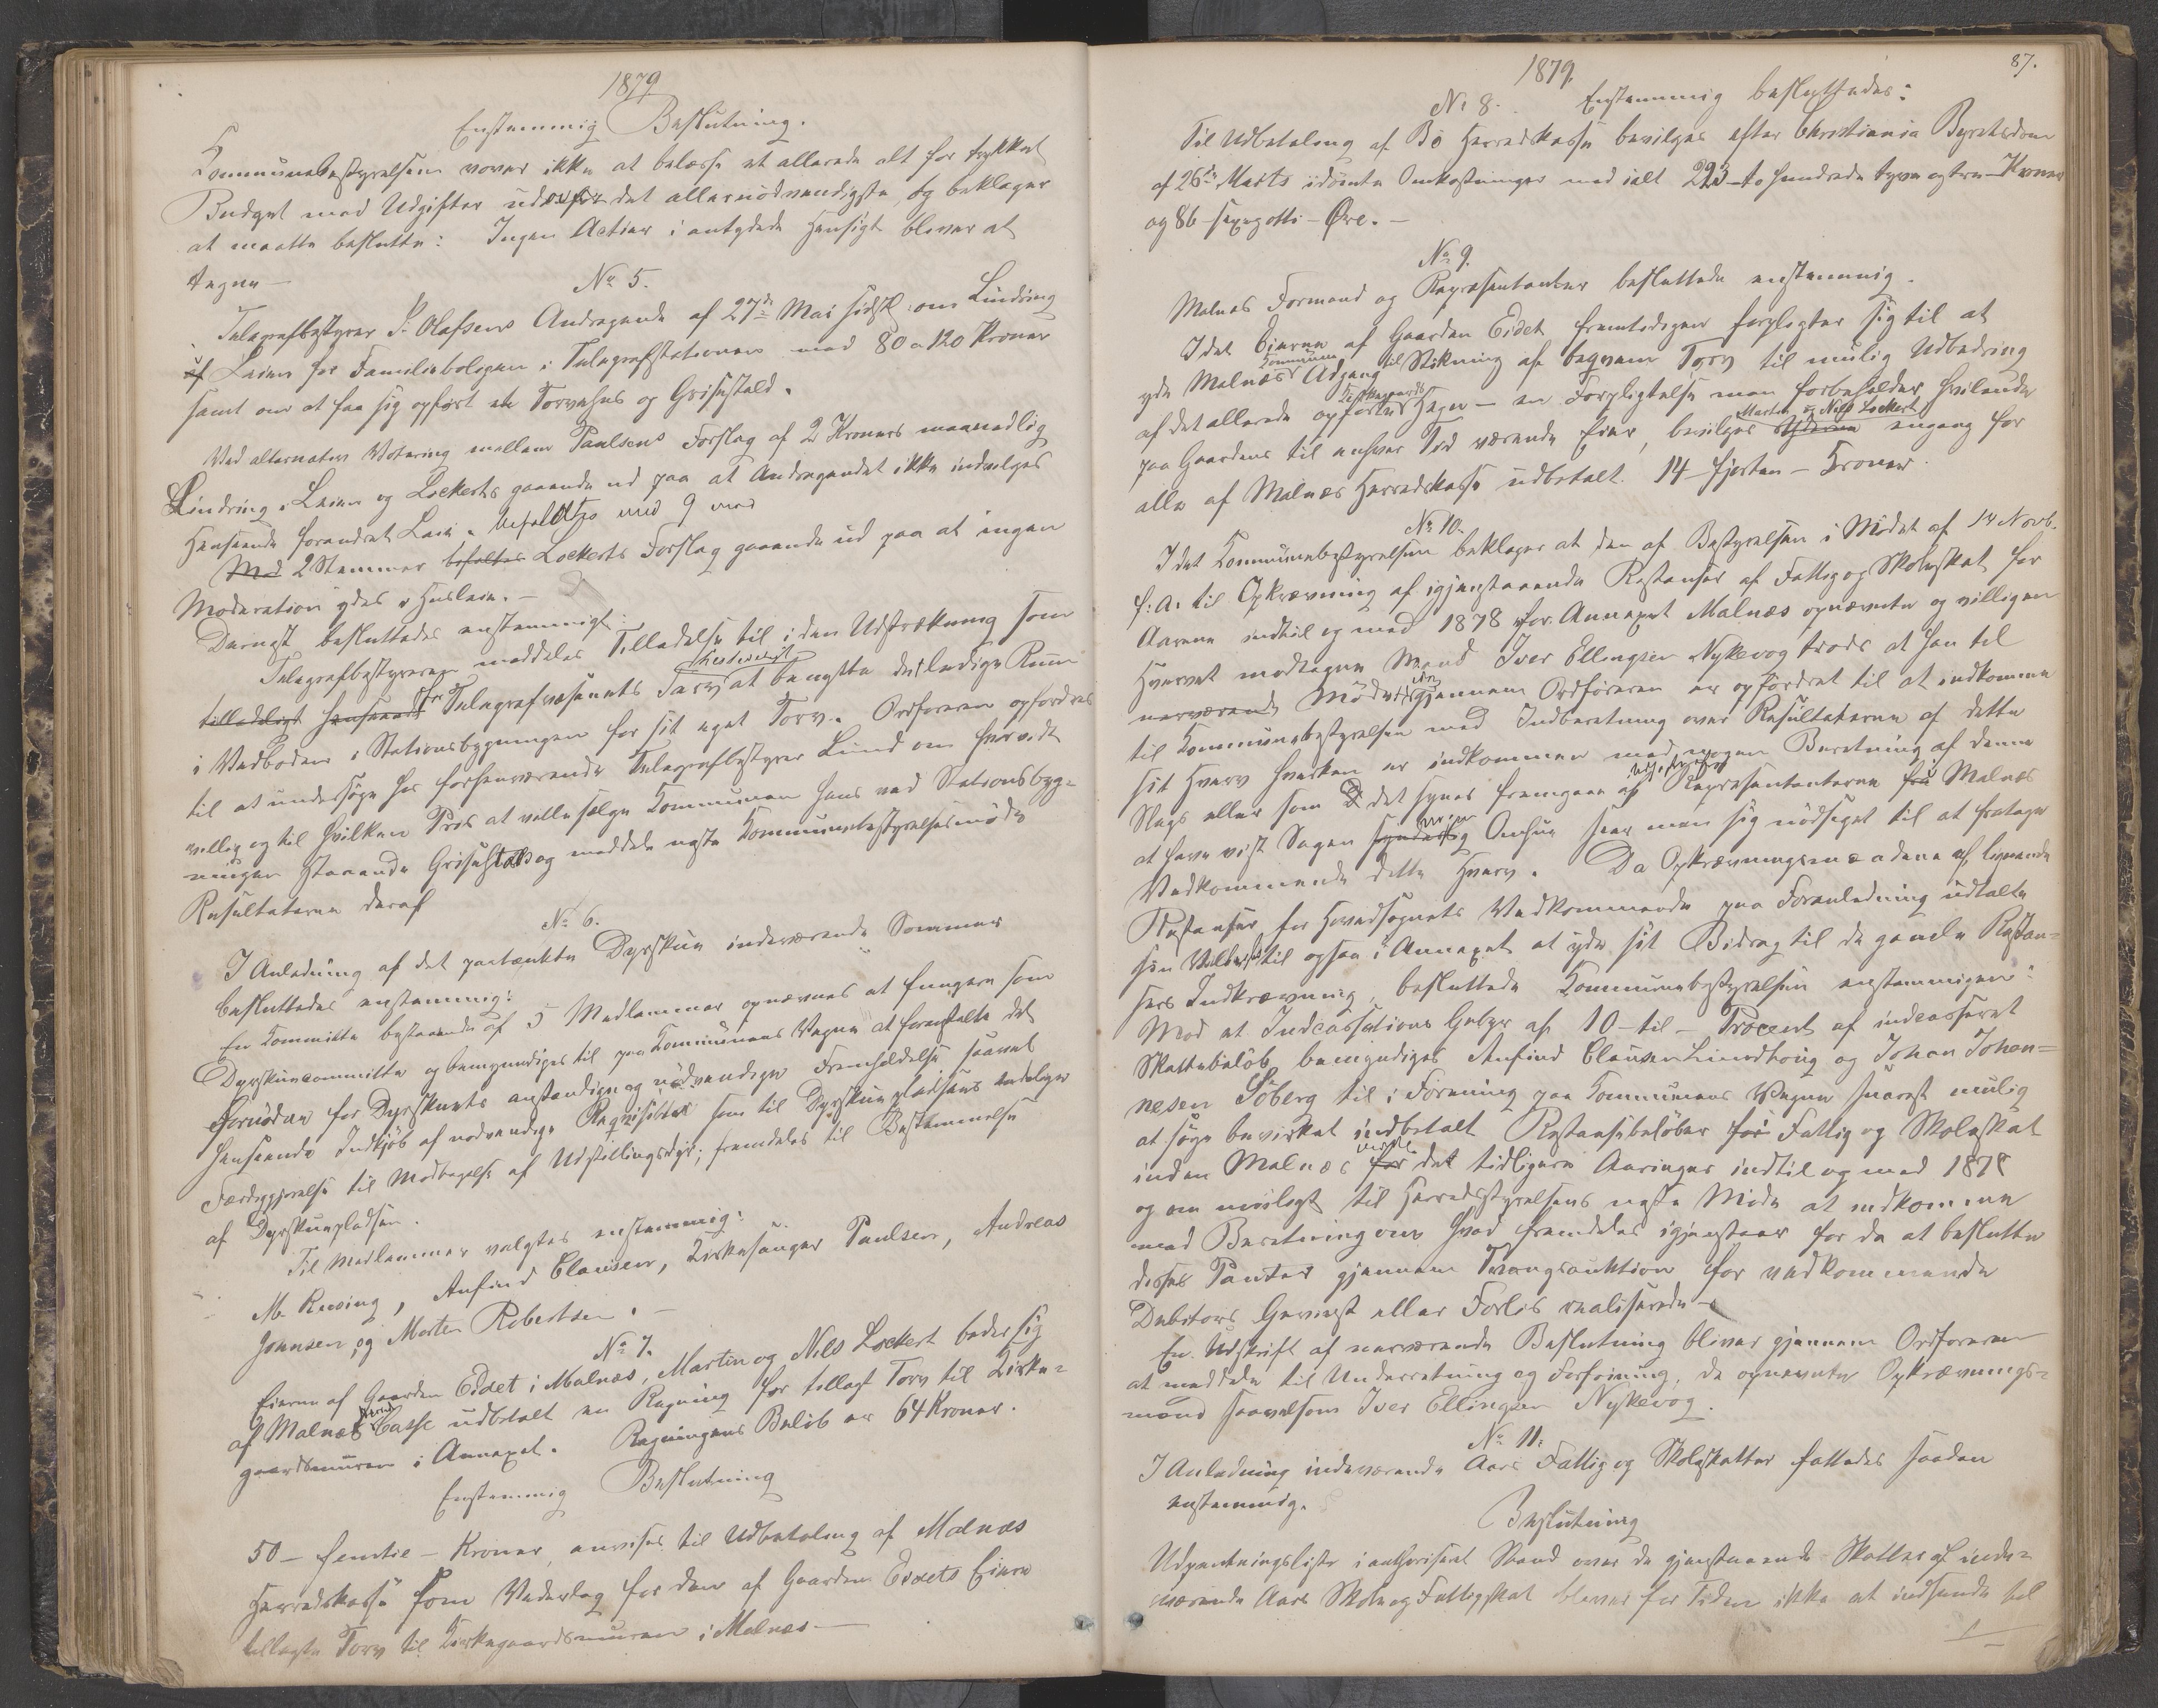 1879
Enstemmig Beslutning.
Kommunebestyrelsen vover ikke at belæsse et allerede alt for trykket
Budget med Udgifter udenfor det allernødvendigste, og beklager
at maatte beslutte: Ingen Actier i antydede Hensigt bliver at
tegne —
No 5.
Telegrafbestyrer P. Olafsens Andragende af 27de Mai sidstl. om Lindring
af Leien for Familiebolegen i Telegrafstationen med 80 a 120 Kroner
samt om at faa sig opført et Torvehus og Grisestald.
Ved alternativ Votering mellem Paulsens Forslag af 2 Kroners maanedlig
Lindring i Leien og Lockerts gaaende ud paa at Andragendet ikke indvilges
Henseende forandret Leie. befoldtes med 9 mod
Med 2 Stemmer befoltes Lockerts Forslag gaaende ud paa at ingen
Moderation ydes i Husleie. —
Dernæst besluttedes enstemmigt:
Telegrafbestyreren meddeles Tilladelse til i den Udstrækning som
tilladeligt Henseende for Telegrafvæsenets Tarv at benytte det ledige Rum
i Vedboden i Stationsbygningen for sit eget Torv. Ordføreren opfordres
til at undersøge hos forhenværende Telegrafbestyrer Lund om hvorvidt
villig og til hvilken Pris at ville sælge Kommunen hans ved Stationsbyg-
ningen staaende Grisestald og meddele næste Kommunebestyrelsesmøde
Resultaterne deraf
No 6.
I Anledning af det paatænkte Dyrskue indeværende Sommer
besluttedes enstemmig:
En Kommitte bestaaende af 5 Medlemmer opnævnes at fungere som
Dyrskuecommitte og bemyndiges til paa Kommunens Vegne at foranstalte det
fornødne for Dyrskuets anstændige og nødvendige Fremholdelse saavel
Henseende Indkjøb af nødvendige Reqvisitter som til Dyrskuepladsens endelige
Færdiggjørelse til Modtagelse af Udstillingsdyr; fremdeles til Bestemmelse
af Dyrskuepladsen.
Til Medlemmer valgtes enstemmig:
M. Rusing, Anfind Clausen, Kirkesanger Paulsen, Andreas
Johnsen, og Morten Robertsen. —
No 7.
Eierne af Gaarden Eidet i Malnæs, Martin og Nils Lockert beder sig
af Malnæs Herreds Casse udbetalt en Regning for tillagt Torv til Kirke-
gaardsmuren i Annexet. Regningens Beløb er 64 Kroner.
Enstemmig Beslutning
50 — femtie — Kroner anvises til Udbetaling af Malnæs
Herredskasse som Vederlag for den af Gaarden Eidets Eiere
tillagte Torv til Kirkegaardsmuren i Malnæs —
1879.
87.
No 8. Enstemmig besluttedes:
Til Udbetaling af Bø Herredskasse bevilges efter Christiania Byretsdom
af 26de Marts idømte Omkostninger med ialt 223 — to hundrede tyve og tre — Kroner
og 86 — sexogotti — Øre. —
No 9.
Malnæs Formænd og Repræsentanter besluttede enstemmig.
Idet Eierne af Gaarden Eidet fremtidigen forpligter sig til at
yde Malnæs Kommune Adgang til Stikning af beqvem Torv til mulig Udbedring
af det allerede opførte Kirkegaards Hegn — en Forpligtelse man forbeholder hvilende
paa Gaarden til enhver Tid værende Eier, bevilges Eierne Martin og Nils Lockert engang for
alle af Malnæs Herredskasse udbetalt 14 — fjorten — Kroner.
No 10.
Idet Kommunebestyrelsen beklager at den af Bestyrelsen i Mødet af 14 Novb.
f. A. til Opkrævning af igjenstaaende Restanser af Fattig og Skoleskat for
Aarene indtil og med 1878 for Annexet Malnæs opnævnte og villigen
Hvervet modtagne Mand Iver Ellingsen Nykevog trods at han til
nærværende Møde gjennem Ordføreren er opfordret til at indkomme
til Kommunebestyrelsen med Indberetning over Resultaterne af dette
sit Hverv hverken er indkommen med nogen Beretning af denne
Slags eller som det synes fremgaa af Repræsentanterne fra Malnæs
at have vist Sagen synderlig Omhu seer man sig nødsaget til at fratage
Vedkommende dette Hverv. Da Opkrævningsmændene af lignende
Restanser for Hovedsognets Vedkommende paa Foranledning udtalte
sin Villighed til ogsaa i Annexet at yde sit Bidrag til de gamle Restan-
sers Indkrævning, besluttede Kommunebestyrelsen enstemmigen:
Mod et Indcassations Gebyr af 10 — ti — Procent af indcasseret
Skattebeløb bemyndiges Anfind Clausen Lindthoug og Johan Johan-
nesen Søberg til i Forening paa Kommunens Vegne snarest mulig
at søge bevirket indbetalt Restansebeløber for Fattig og Skoleskat
inden Malnæs for det tidligere Aaringer indtil og med 1878
og om muligt til Herredsstyrelsens næste Møde at indkomme
med Beretning om hvad fremdeles igjenstaar for da at beslutte
disses Panter gjennem Tvangsauktion for vedkommende
Debitors Gevinst eller Forlis realiserede —
En Udskrift af nærværende Beslutning bliver gjennem Ordføreren
at meddele til Underretning og Forføining, de opnævnte Opkrævnings-
mænd saavelsom Iver Ellingsen Nykevog.
No 11.
I Anledning indeværende Aars Fattig og Skoleskatter fattedes saadan
enstemmig.
Beslutning
Udpantningsliste i authoriseret Stand over de gjenstaaende Skatter af inde-
værende Aars Skole og Fattigskat bliver for Tiden ikke at indsende til